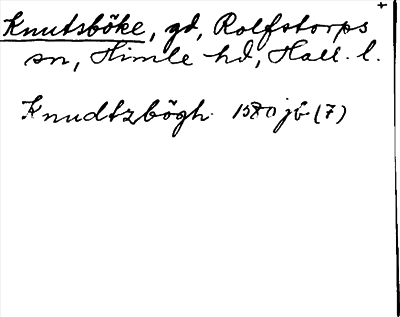 +
Knutsböke, gd, Rolfstorps
sn, Himle hd, Hall. l.
Knudtzbögh 1580 jb (7)